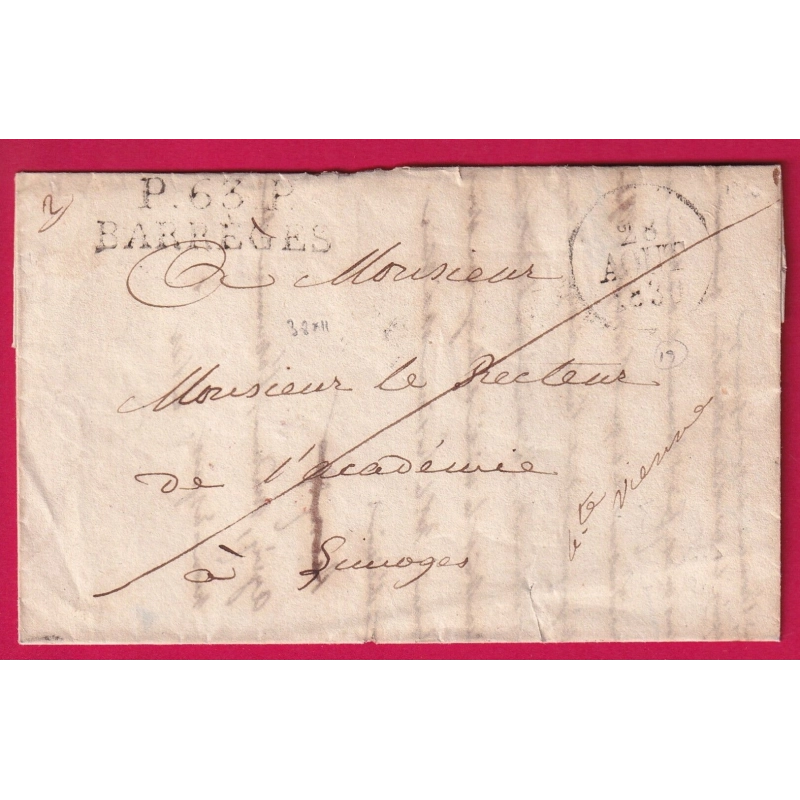 P.63.P
BARRÈGES
28
AOUT
1830
A Monsieur
Monsieur le Recteur
de l'académie
à Limoges
h.te vienne
19